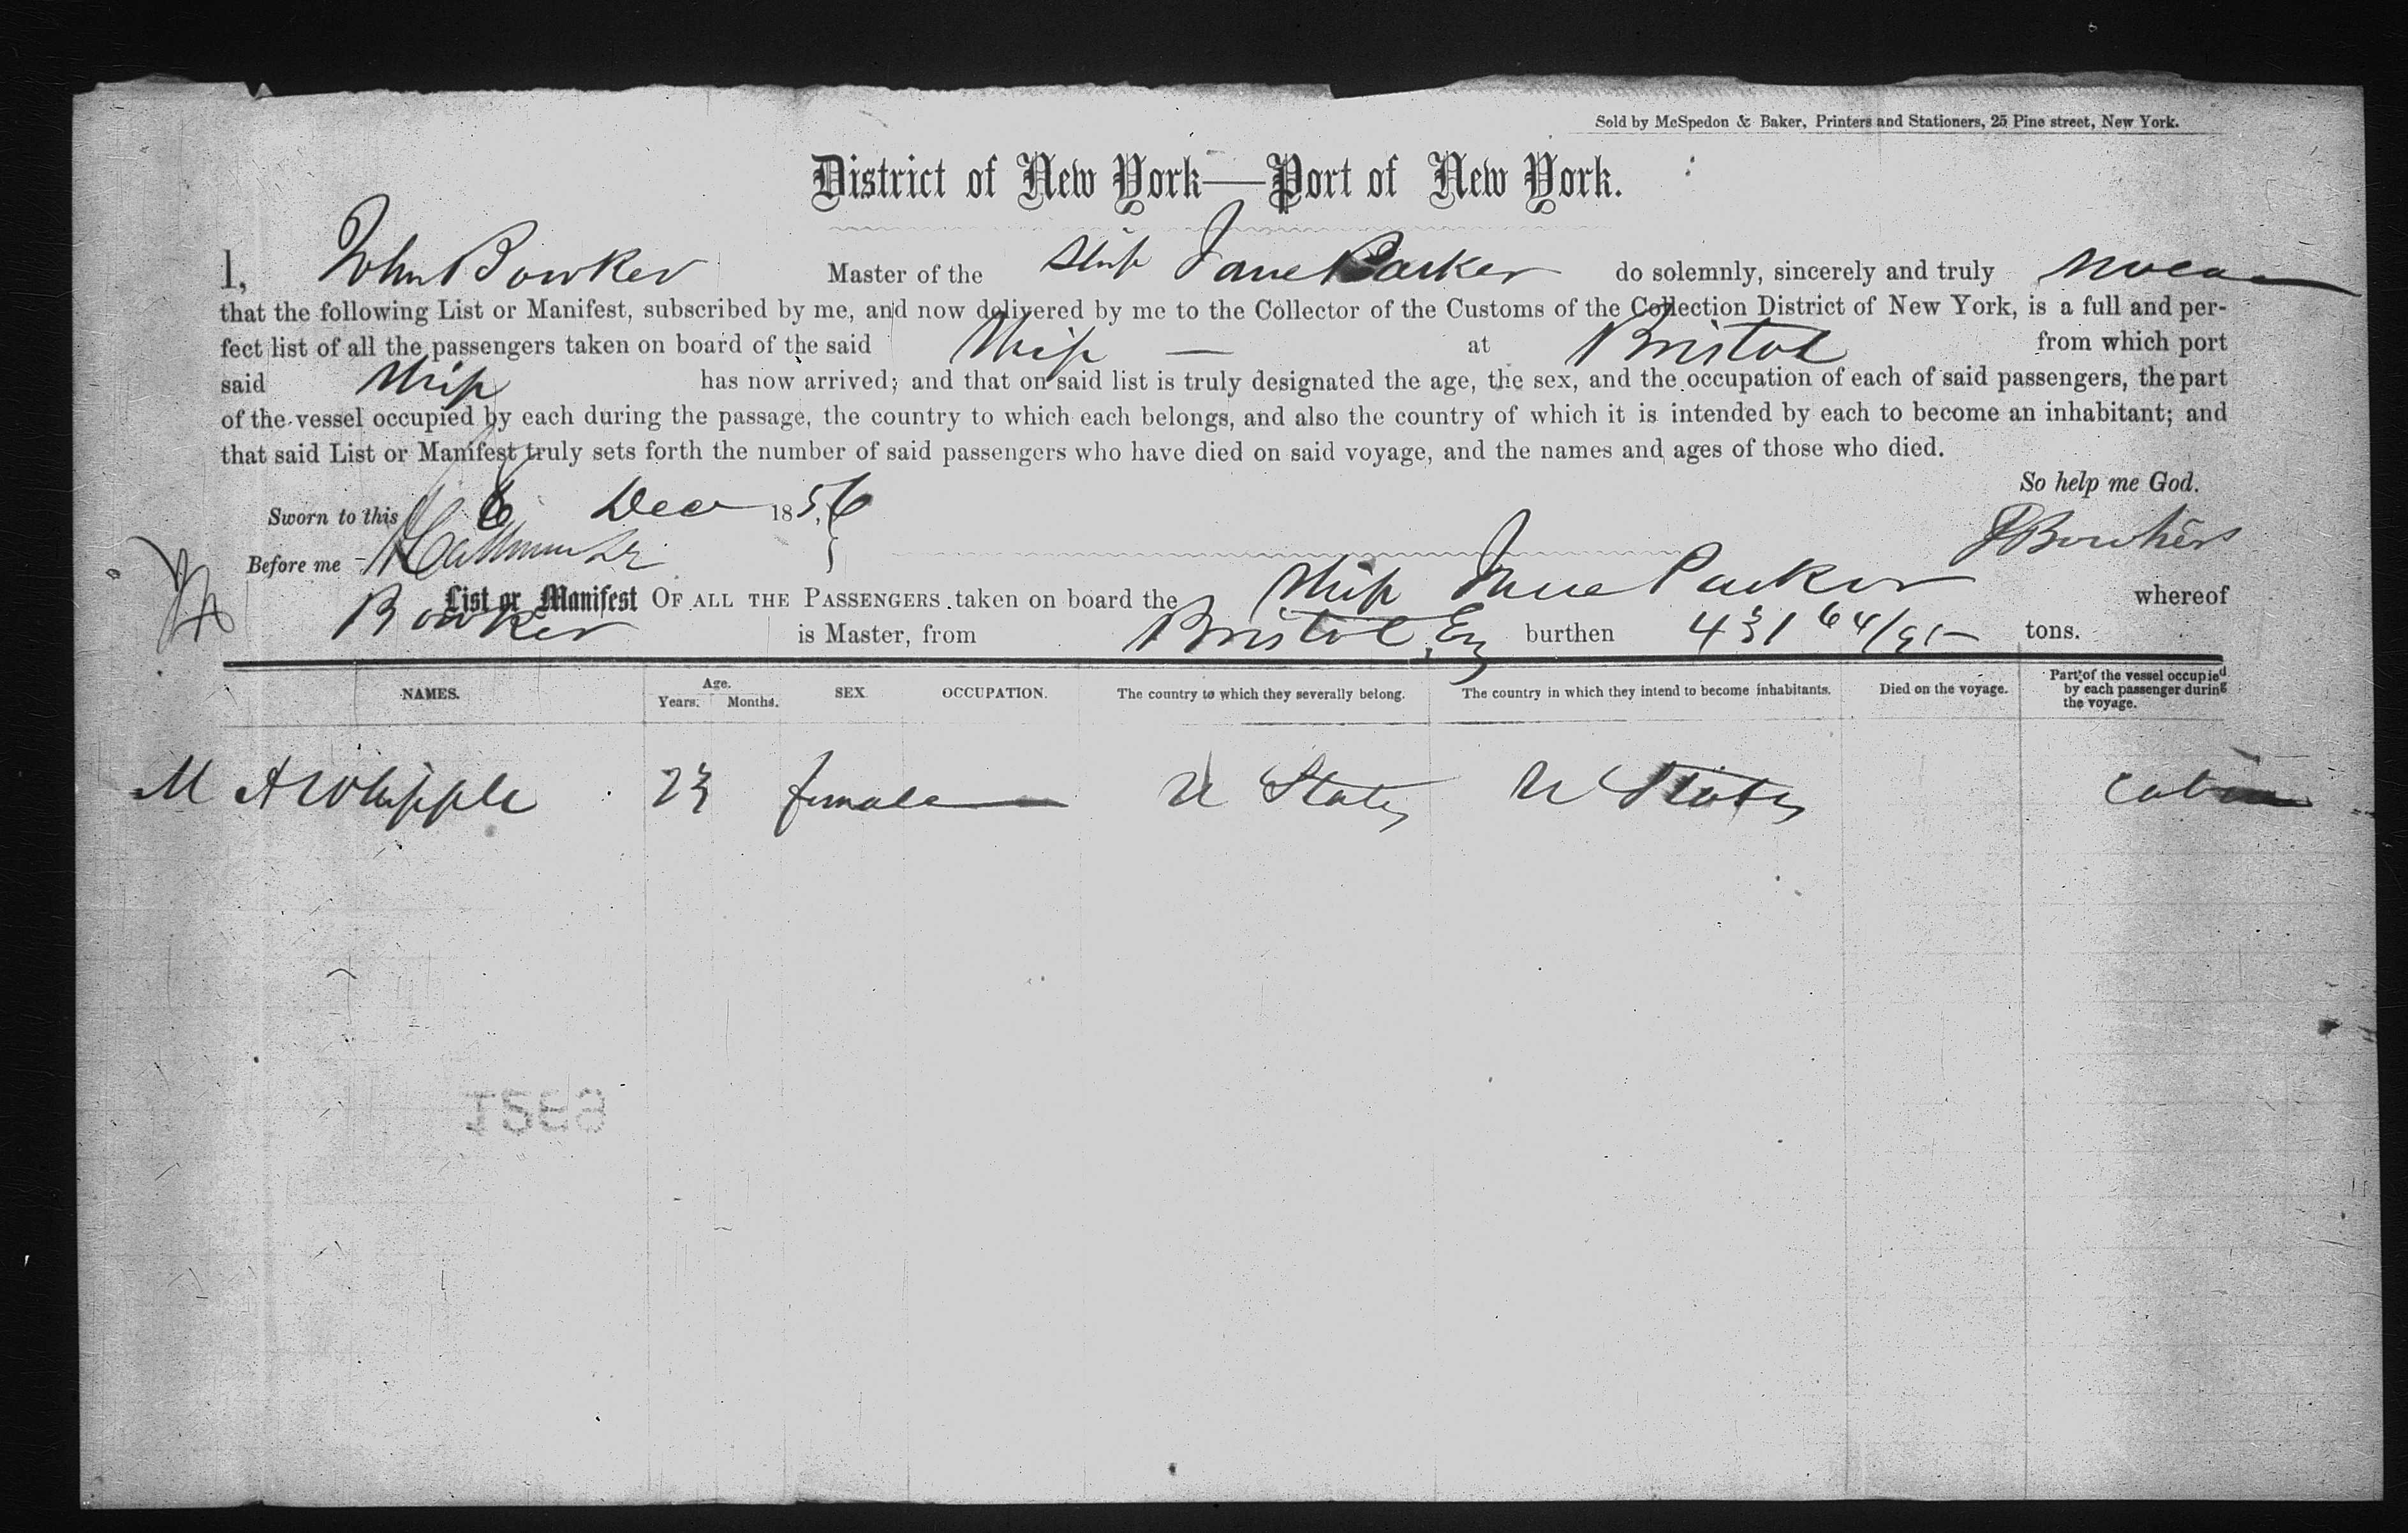 Sold by McSpedon & Baker, Printers and Stationers, 25 Pine street, New York.
District of New York—Port of New York.
I, John Bowker Master of the Ship Jane Parker do solemnly, sincerely and truly swear
that the following List or Manifest, subscribed by me, and now delivered by me to the Collector of the Customs of the Collection District of New York, is a full and per-
fect list of all the passengers taken on board of the said Ship — at Bristol from which port
said Ship has now arrived; and that on said list is truly designated the age, the sex, and the occupation of each of said passengers, the part
of the vessel occupied by each during the passage, the country to which each belongs, and also the country of which it is intended by each to become an inhabitant; and
that said List or Manifest truly sets forth the number of said passengers who have died on said voyage, and the names and ages of those who died.
So help me God.
Sworn to this 6 Dec 1856
J Bowker
Before me
List or Manifest OF ALL THE PASSENGERS taken on board the Ship Jane Parker whereof
Bowker is Master, from Bristol, Eng burthen 431 64/95 tons.
NAMES. Age. Years. Months. SEX OCCUPATION. The country to which they severally belong. The country in which they intend to become inhabitants. Died on the voyage. Part of the vessel occupied by each passenger during the voyage.
M A Whipple 23 female U States U States Cabin